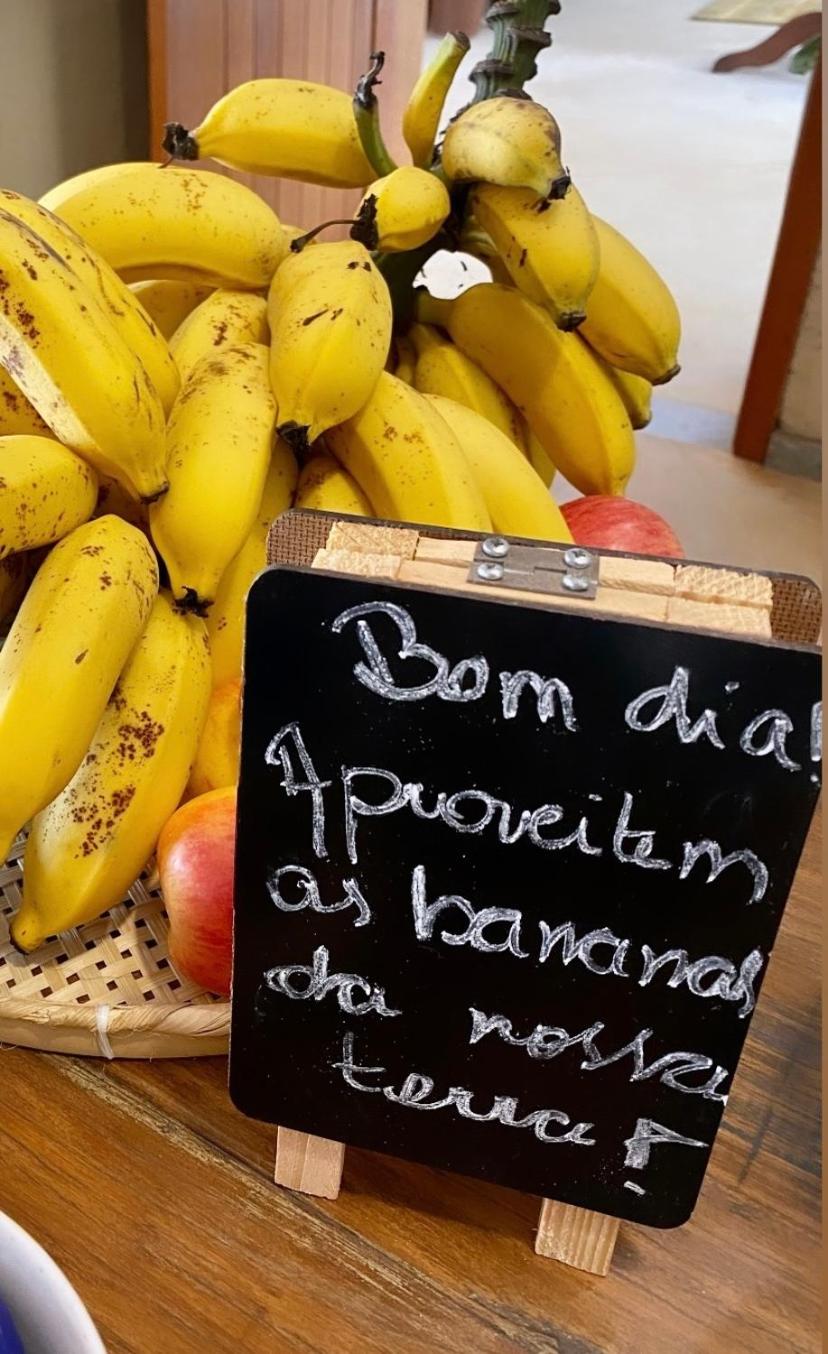 Bom dia!
Aproveitem
as bananas
da nossa
terra!